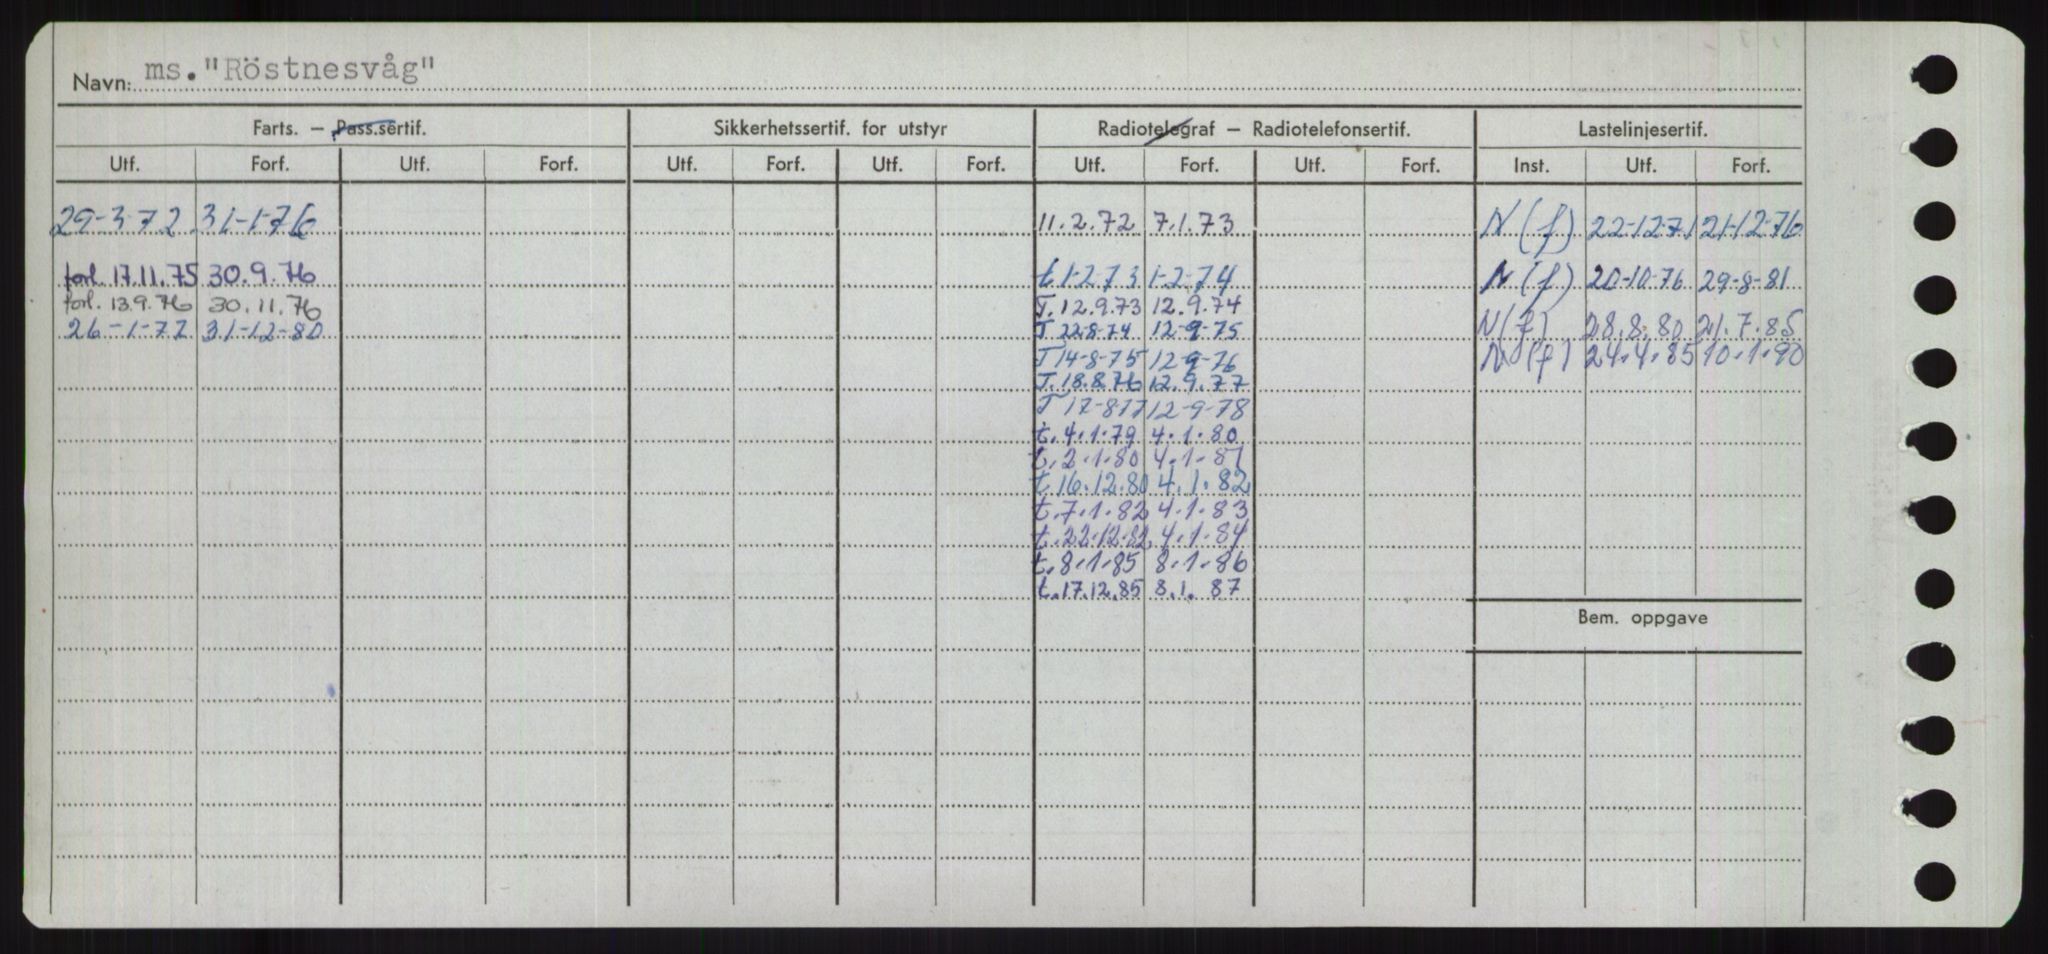 Navn: ms. "Röstnesvåg"
Farts. — Pass.sertif. Sikkerhetssertif. for utstyr Radiotelegraf — Radiotelefonsertif. Lastelinjesertif.
Utf. Forf. Utf. Forf. Utf. Forf. Utf. Forf. Utf. Forf. Utf. Forf. Inst. Utf. Forf.
29-3-72 31-1-76 11.2.72 7.1.73 N (f) 22-12-71 21-12-76
forl. 17.11.75 30.9.76 t 1-2-73 1-2-74 N (f) 20-10-76 29-8-81
forl. 13.9.76 30.11.76 T. 12.9.73 12.9.74
26-1-77 31-12-80 T 22-8-74 12-9-75 N (f) 28.8.80 21.7.85
T 14-8-75 12-9-76 N (f) 24.4.85 10.1.90
T. 18.8.76 12.9.77
T 17-8-77 12-9-78
t. 4.1.79 4.1.80
t. 2.1.80 4.1.81
t. 16.12.80 4.1.82
t. 7.1.82 4.1.83
t. 22.12.82 4.1.84
t. 8.1.85 8.1.86
t. 17.12.85 8.1.87
Bem. oppgave